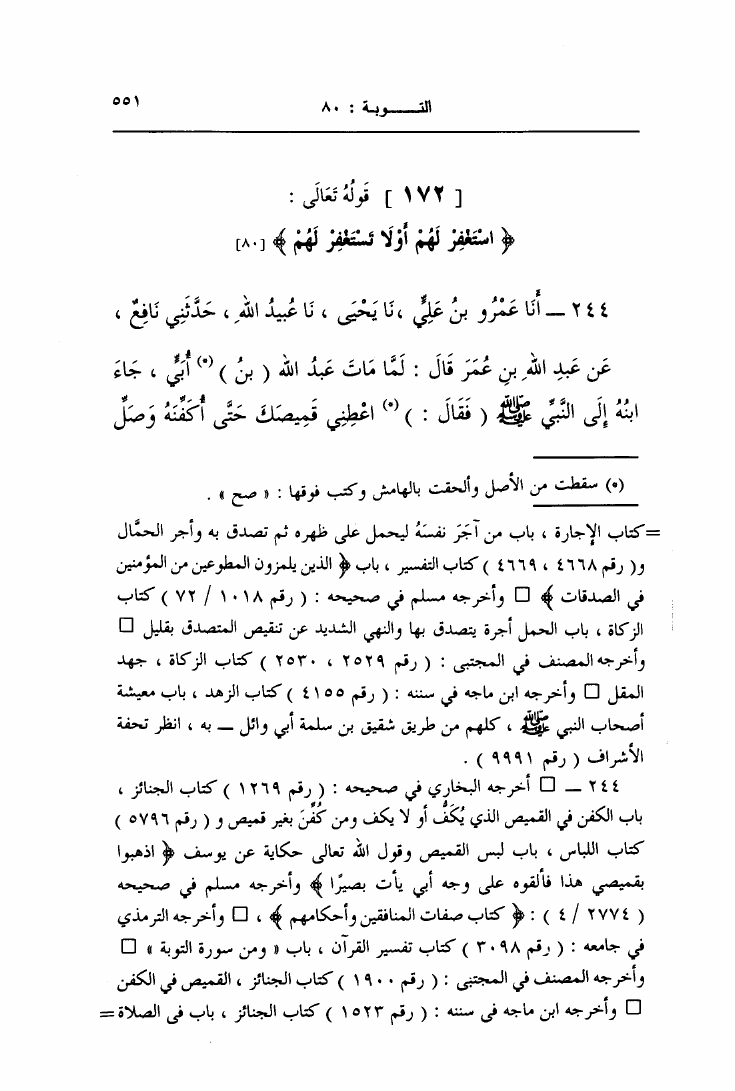 التـــوبـة : ٨٠
٥٥١
[ ١٧٢ ] قَولُهُ تَعَالَى :
﴿ اسْتَغْفِرْ لَهُمْ أَوْلَا تَسْتَغْفِرْ لَهُمْ ﴾ [٨٠]
٢٤٤ – أَنَا عَمْرُو بنُ عَلِيٍّ ، نَا يَحْيَى ، نَا عُبيدُ اللهِ ، حَدَّثَنِي نَافِعٌ ،
عَن عَبدِ اللهِ بنِ عُمَرَ قَالَ : لَمَّا مَاتَ عَبدُ الله ( بنُ ) (*) أُبَيٍّ ، جَاءَ
ابنُهُ إِلَى النَّبِيِّ ﷺ ( فَقَالَ : ) (*) اعْطِنِي قَمِيصَكَ حَتَّى أُكَفِّنَهُ وَصَلِّ
(*) سقطت من الأصل وألحقت بالهامش وكتب فوقها : « صح » .
=كتاب الإجارة ، باب من آجَرَ نفسَهُ ليحمل على ظهره ثم تصدق به وأجر الحمَّال
و( رقم ٤٦٦٨ ، ٤٦٦٩ ) كتاب التفسير ، باب ﴿ الذين يلمزون المطوعين من المؤمنين
في الصدقات ﴾ □ وأخرجه مسلم في صحيحه : ( رقم ١٠١٨ / ٧٢ ) كتاب
الزكاة ، باب الحمل أجرة يتصدق بها والنهي الشديد عن تنقيص المتصدق بقليل □
وأخرجه المصنف في المجتبى : ( رقم ٢٥٢٩ ، ٢٥٣٠ ) كتاب الزكاة ، جهد
المقل □ وأخرجه ابن ماجه في سننه : ( رقم ٤١٥٥ ) كتاب الزهد ، باب معيشة
أصحاب النبي ﷺ ، كلهم من طريق شقيق بن سلمة أبي وائل – به ، انظر تحفة
الأشراف ( رقم ٩٩٩١ ) .
٢٤٤ – □ أخرجه البخاري في صحيحه : ( رقم ١٢٦٩ ) كتاب الجنائز ،
باب الكفن في القميص الذي يُكَفُّ أو لا يكف ومن كُفِّنَ بغير قميص و ( رقم ٥٧٩٦ )
كتاب اللباس ، باب لبس القميص وقول الله تعالى حكاية عن يوسف ﴿ اذهبوا
بقميصي هذا فألقوه على وجه أبي يأت بصيرًا ﴾ وأخرجه مسلم في صحيحه
( ٢٧٧٤ / ٤ ) : ﴿ كتاب صفات المنافقين وأحكامهم ﴾ ، □ وأخرجه الترمذي
في جامعه : ( رقم ٣٠٩٨ ) كتاب تفسير القرآن ، باب « ومن سورة التوبة » □
وأخرجه المصنف في المجتبى : ( رقم ١٩٠٠ ) كتاب الجنائز ، القميص في الكفن
□ وأخرجه ابن ماجه في سننه : ( رقم ١٥٢٣ ) كتاب الجنائز ، باب في الصلاة=